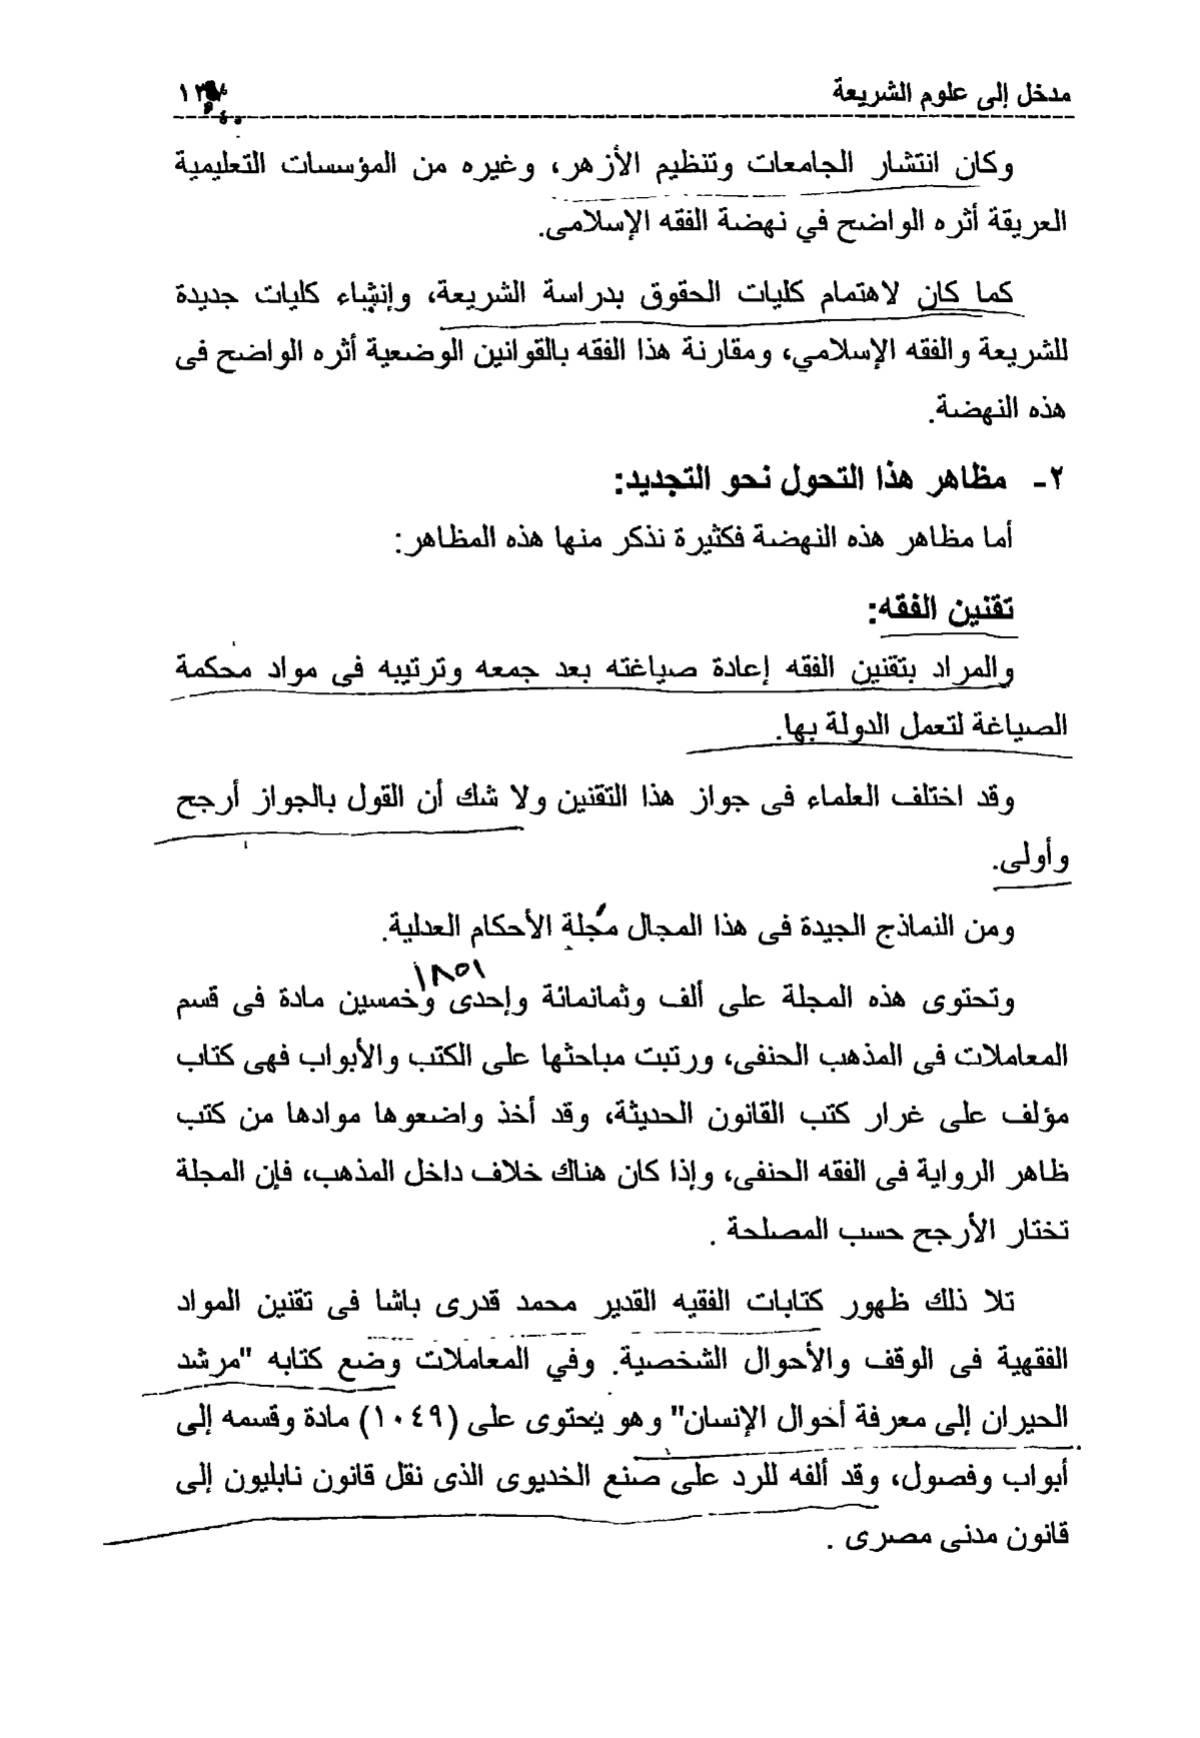 مدخل إلى علوم الشريعة
وكان انتشار الجامعات وتنظيم الأزهر، وغيره من المؤسسات التعليمية
العريقة أثره الواضح في نهضة الفقه الإسلامى.
كما كان لاهتمام كليات الحقوق بدراسة الشريعة، وإنشاء كليات جديدة
للشريعة والفقه الإسلامي، ومقارنة هذا الفقه بالقوانين الوضعية أثره الواضح فى
هذه النهضة.
٢- مظاهر هذا التحول نحو التجديد:
أما مظاهر هذه النهضة فكثيرة نذكر منها هذه المظاهر:
تقنين الفقه:
والمراد بتقنين الفقه إعادة صياغته بعد جمعه وترتيبه فى مواد محكمة
الصياغة لتعمل الدولة بها.
وقد اختلف العلماء فى جواز هذا التقنين ولا شك أن القول بالجواز أرجح
وأولى.
ومن النماذج الجيدة فى هذا المجال مجلة الأحكام العدلية.
١٨٥١
وتحتوى هذه المجلة على ألف وثمانمائة وإحدى وخمسين مادة فى قسم
المعاملات فى المذهب الحنفى، ورتبت مباحثها على الكتب والأبواب فهى كتاب
مؤلف على غرار كتب القانون الحديثة، وقد أخذ واضعوها موادها من كتب
ظاهر الرواية فى الفقه الحنفى، وإذا كان هناك خلاف داخل المذهب، فإن المجلة
تختار الأرجح حسب المصلحة .
تلا ذلك ظهور كتابات الفقيه القدير محمد قدرى باشا فى تقنين المواد
الفقهية فى الوقف والأحوال الشخصية. وفي المعاملات وضع كتابه "مرشد
الحيران إلى معرفة أحوال الإنسان" وهو يحتوى على (١٠٤٩) مادة وقسمه إلى
أبواب وفصول، وقد ألفه للرد على صنع الخديوى الذى نقل قانون نابليون إلى
قانون مدنى مصرى .